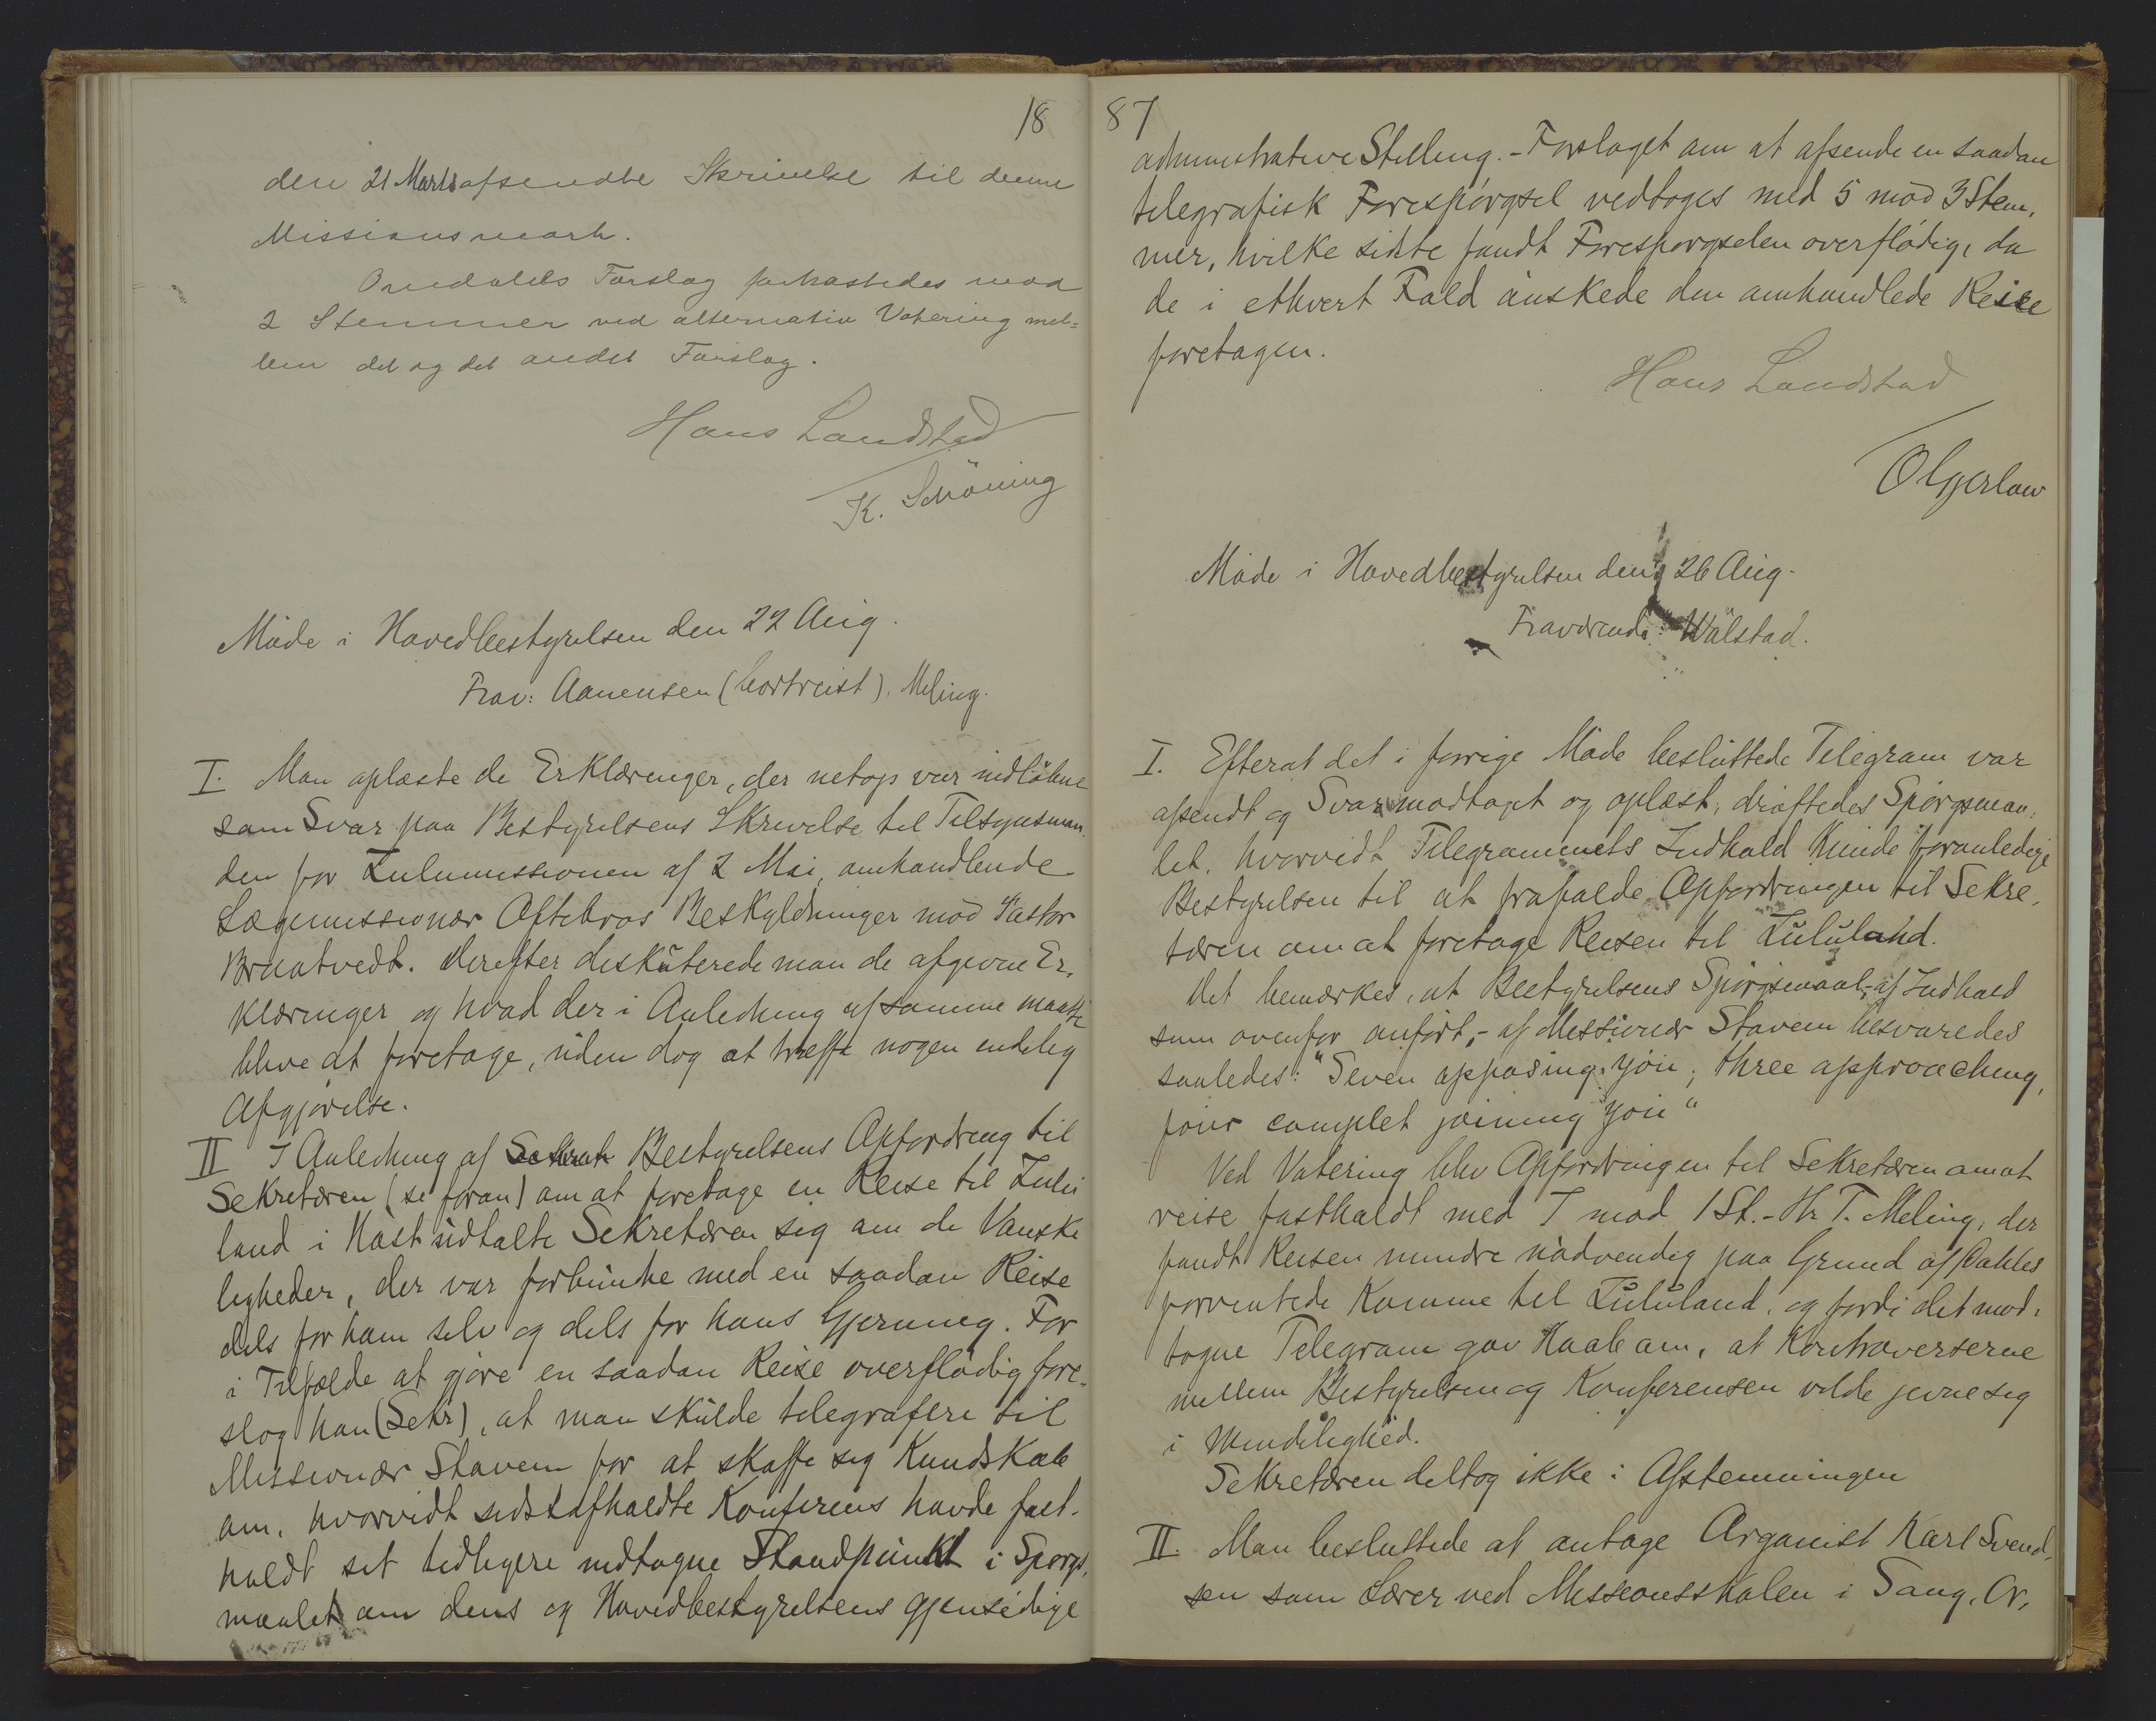 18
den 21 Marts afsendte Skrivelse til denne
Missionsmark.
Omedales Forslag forkastedes mod
2 Stemmer ved alternativ Votering mel=
lem det og det andet Forslag.
Hans Landstad
K. Schöning
Møde i Hovedbestyrelsen den 22 Aug.
Frav: Aanensen (bortreist). Meling.
I. Man oplæste de Erklæringer, der netop var indløbne
som Svar paa Bestyrelsens Skrivelse til Tilsynsman
den for Zulumissionen af 2 Mai, omhandlende
Lægemissionær Oftebros Beskyldninger mod Pastor
Braatvedt. Derefter diskuterede man de afgivne Er,
klæringer og hvad der i Anledning af samme maatte
blive at foretage, uden dog at træffe nogen endelig
Afgjørelse.
II I Anledning af Bestyrelsens Opfordring til
Sekretæren (se foran) om at foretage en Reise til Zulu
land i Høst udtalte Sekretæren sig om de Vanske
ligheder, der var forbundne med en saadan Reise
dels for ham selv og dels for hans Gjerning. For
i Tilfælde at gjøre en saadan Reise overflødig fore,
slog han (Sekr), at man skulde telegrafere til
Missionær Stavem for at skaffe sig Kundskab
om, hvorvidt sidstafholdte Konferens havde fast-
holdt sit tidligere indtagne Standpunkt i Spørgs,
maalet om dens og Hovedbestyrelsens gjensidige
87
administrative Stilling. - Forslaget om at afsende en saadan
telegrafisk Forespørgsel vedtoges med 5 mod 3 Stem,
mer, hvilke sidste fandt Forespørgselen overflødig, da
de i ethvert Fald ønskede den omhandlede Reise
foretagen.
Hans Landstad
O Gjerløw
Møde i Hovedbestyrelsen den 26 Aug.
Fraværende: Wålstad.
I. Efterat det i forrige Møde besluttede Telegram var
afsendt og Svar modtaget og oplæst, drøftedes Spørgsmaa,
let, hvorvidt Telegrammets Indhold kunde foranledige
Bestyrelsen til at frafalde Opfordringen til Sekre,
tæren om at foretage Reisen til Zululand.
Det bemærkes, at Bestyrelsens Spørgsmaal - af Indhold
som ovenfor anført, - af Missionær Stavem besvaredes
saaledes: "Seven opposing you, three approaching,
four complet joining you"
Ved Votering blev Opfordringen til Sekretæren om at
reise fastholdt med 7 mod 1 St. - Hr T. Meling, der
fandt Reisen mindre nødvendig paa Grund af Dahles
forventede Komme til Zululand, og fordi det mod=
tagne Telegram gav Haab om, at Kontroverserne
mellem Bestyrelsen og Konferensen vilde jevne sig
i Mindelighed.
Sekretæren deltog ikke i Afstemningen
II. Man besluttede at antage Organist Karl Svend,
sen som Lærer ved Missionsskolen i Sang, Or,